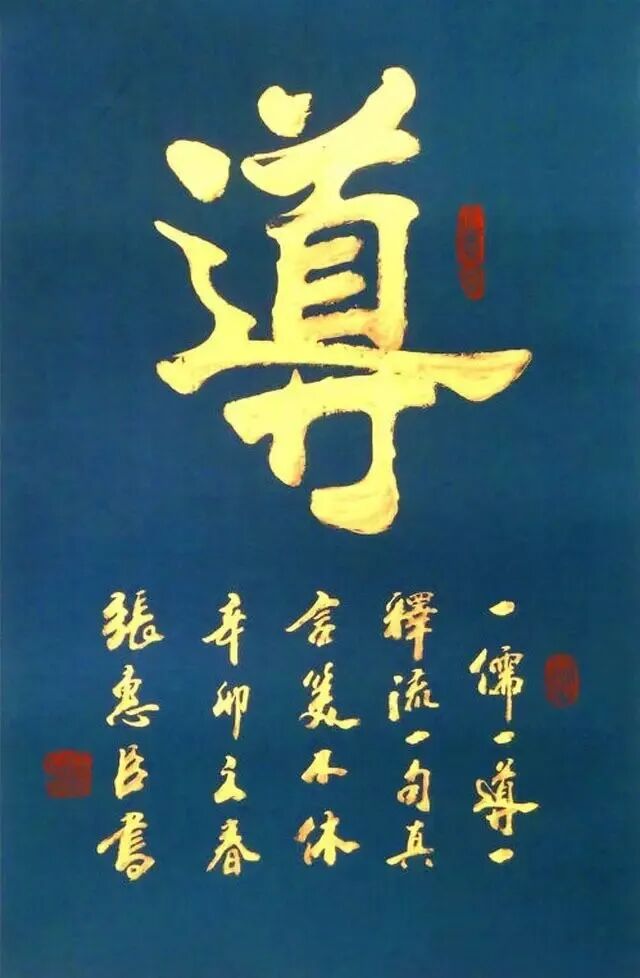 導
一儒一導一
釋流一句真
言萬不休
辛卯之春
張惠臣書